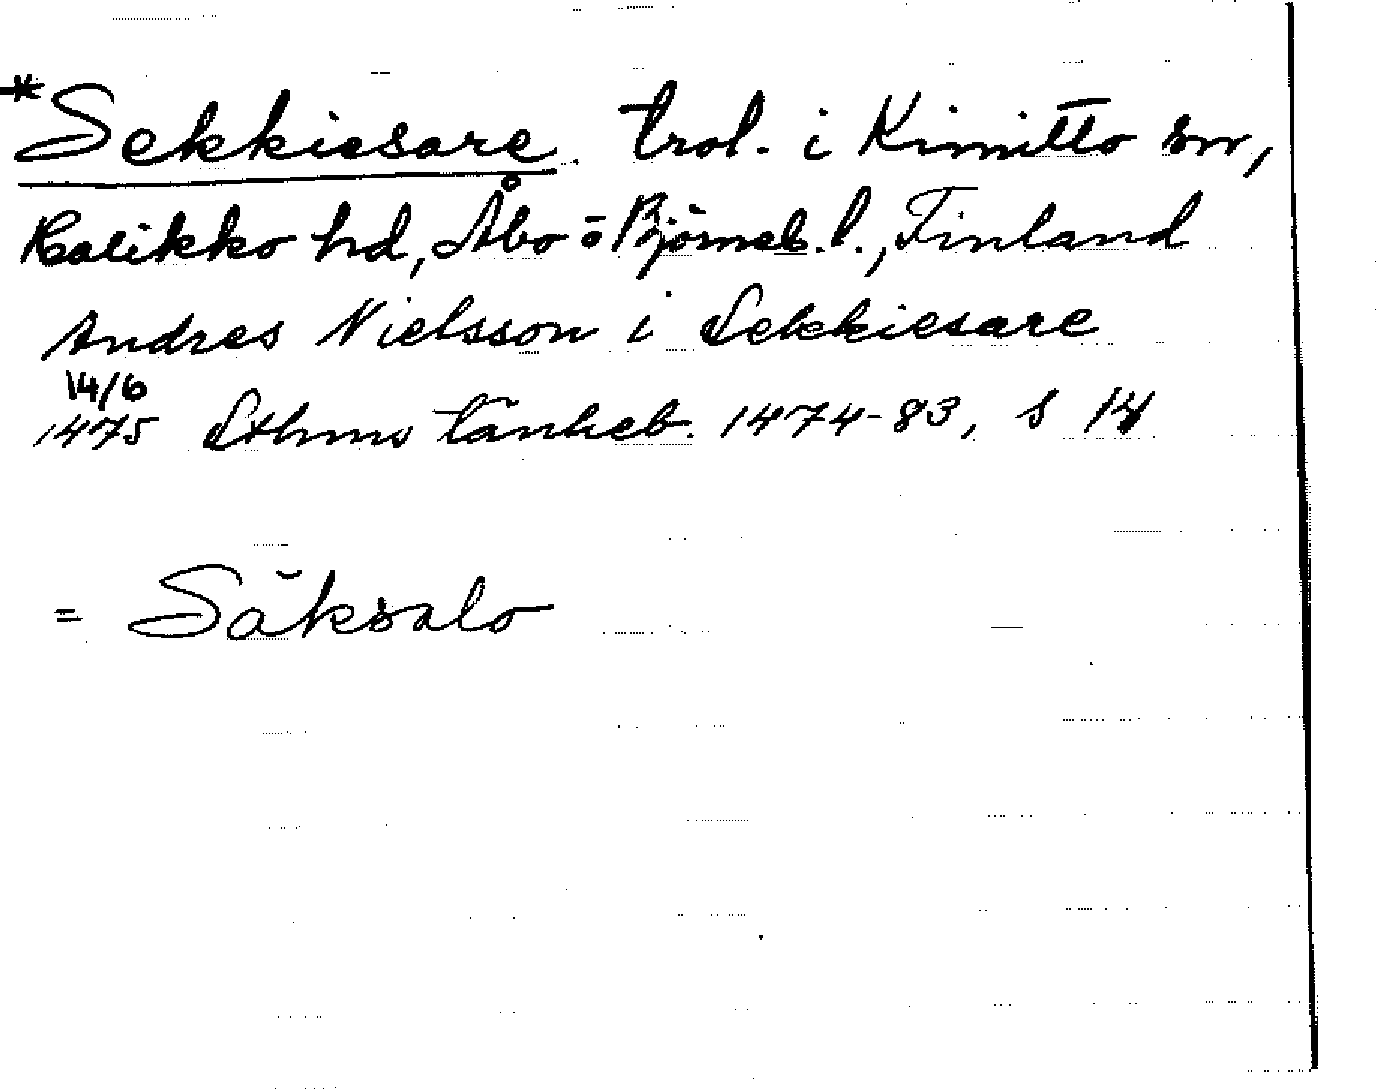 *Sekkiesare. trol. i Kimitto sn,
Halikko hd, Åbo o Björneb. l., Finland
Andres Nielsson i Sekkiesare
14/6
1475 Sthms tänkeb. 1474-83, s 14
= Säksalo